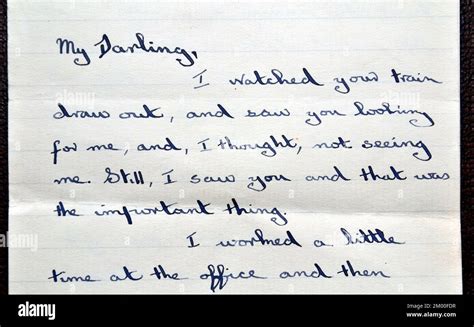 My Darling,
I watched your train
draw out, and saw you looking
for me, and, I thought, not seeing
me. Still, I saw you and that was
the important thing.
I wormed a little
time at the office and then
alamy
Image ID: 2M00FDR
www.alamy.com